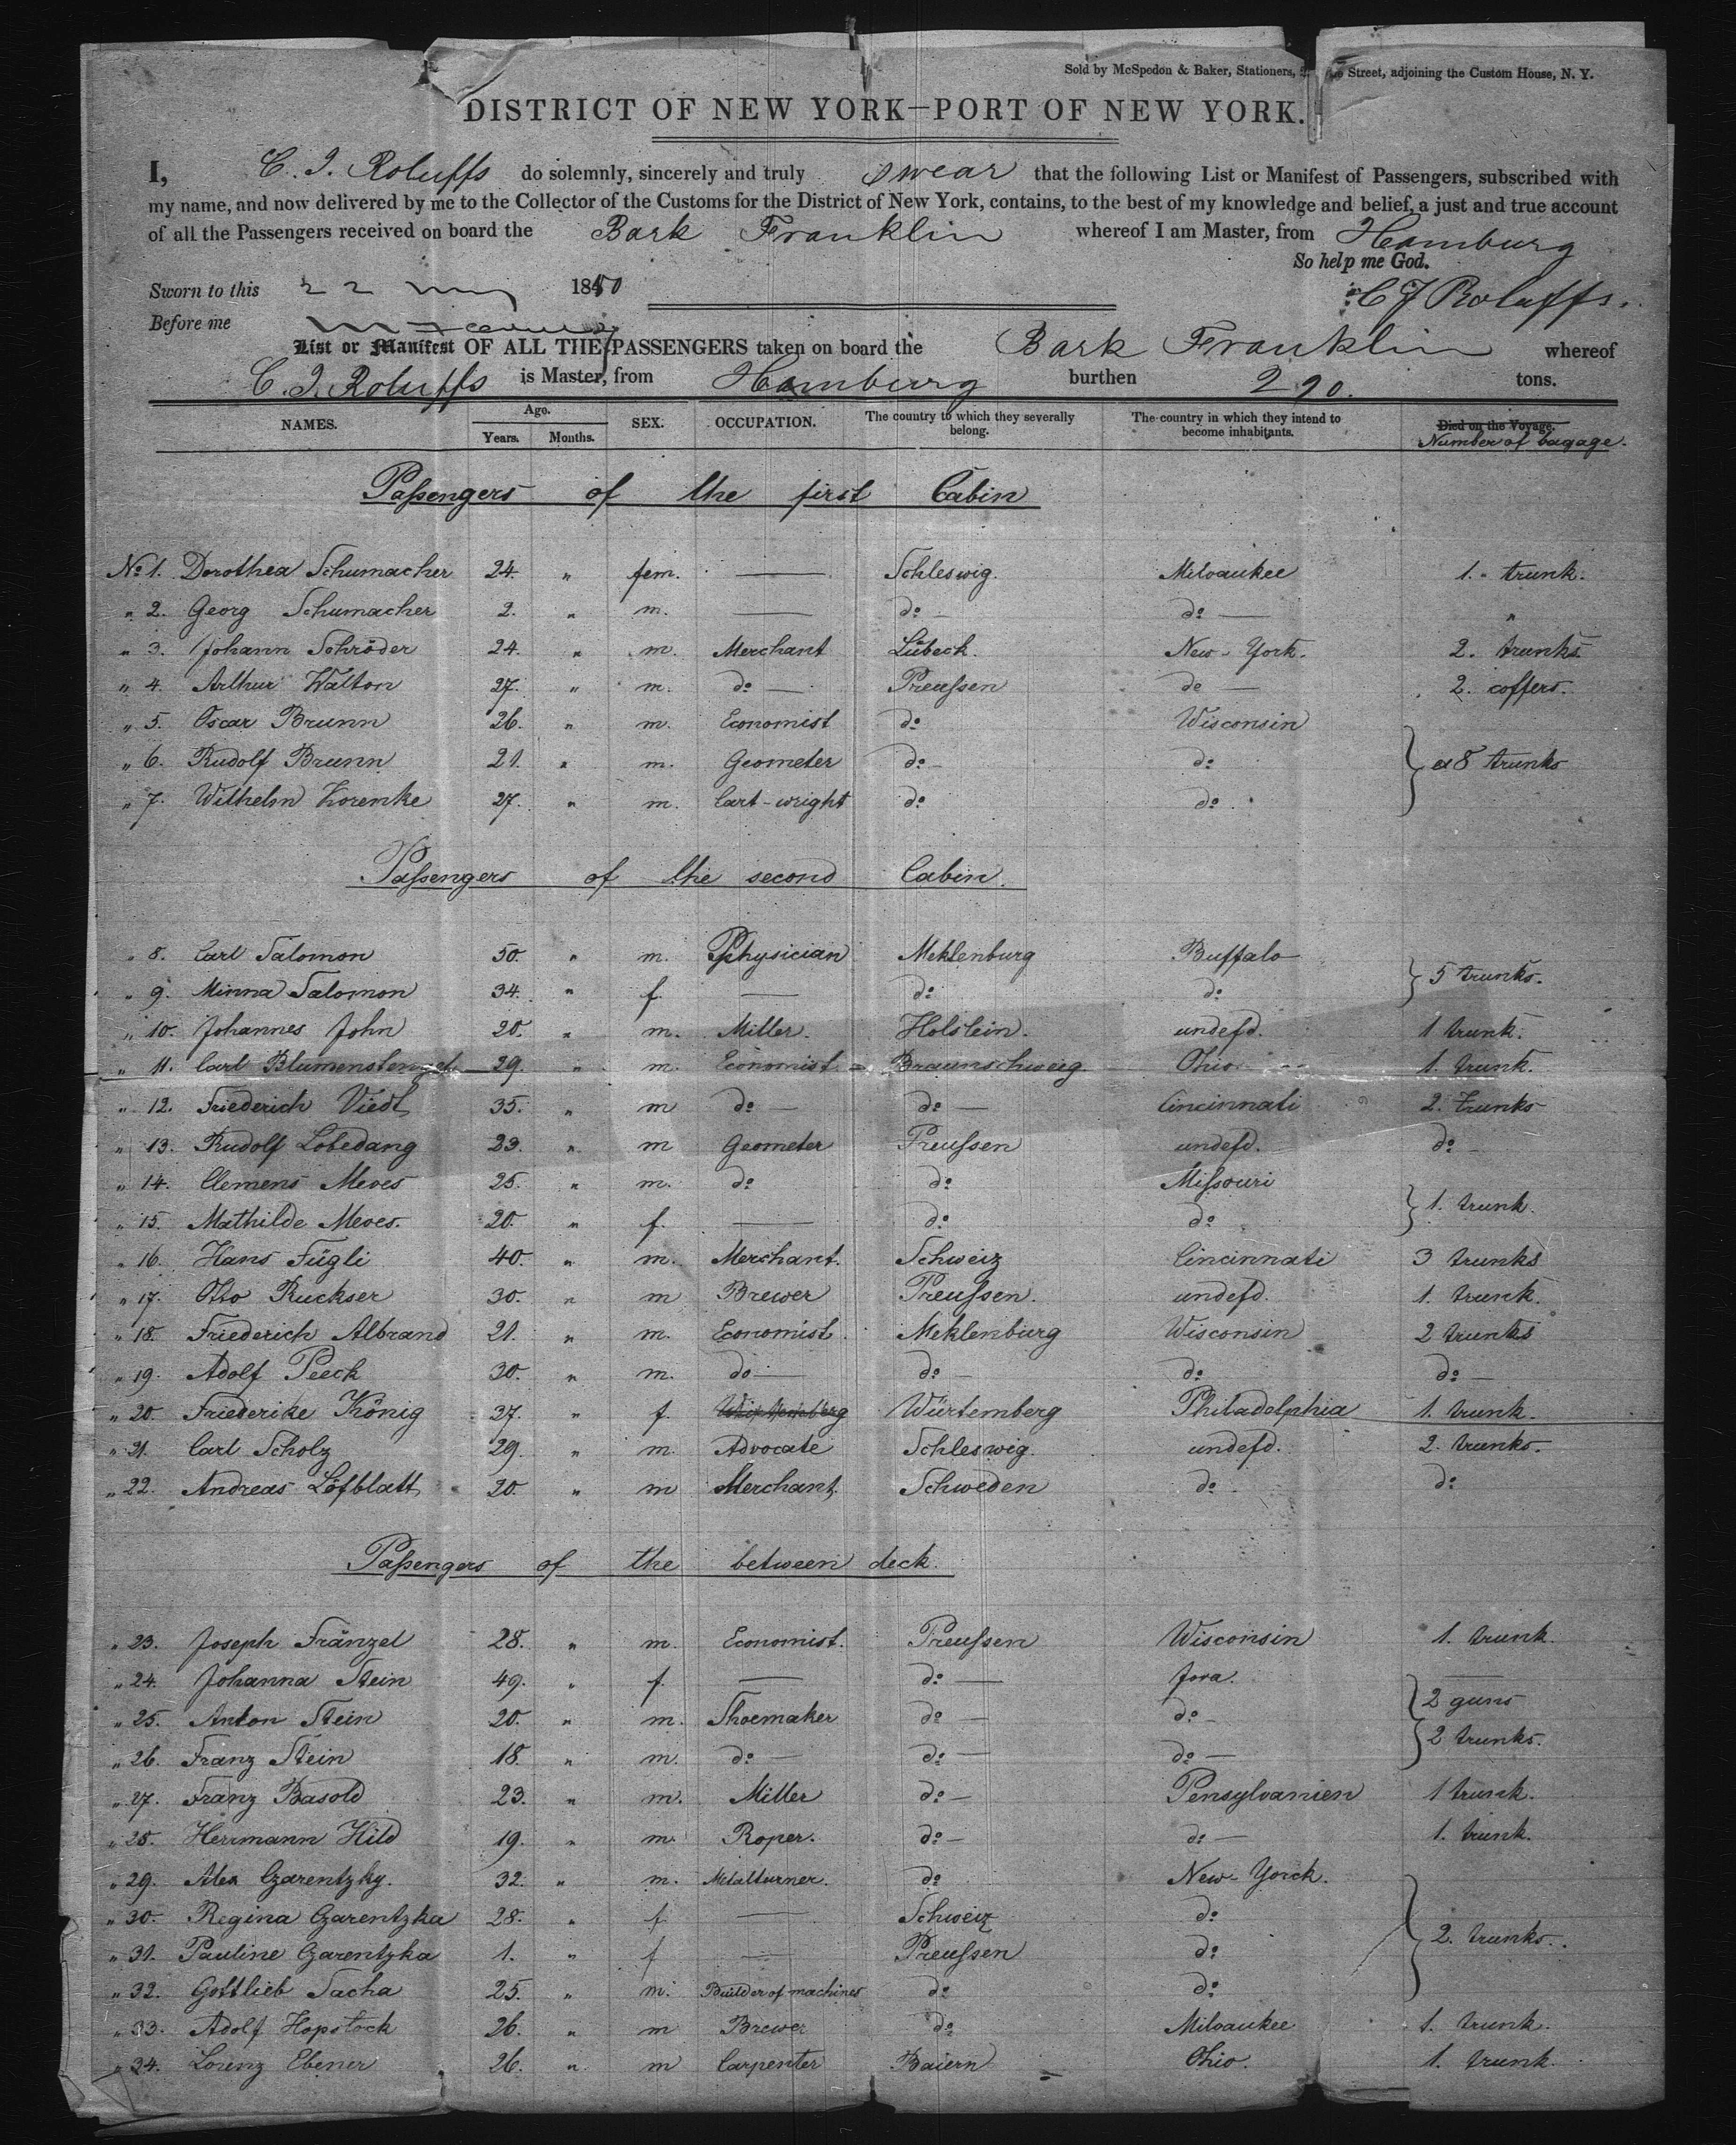 Sold by McSpedon & Baker, Stationers, Street, adjoining the Custom House, N. Y.
DISTRICT OF NEW YORK—PORT OF NEW YORK.
I, C. J. Roluffs do solemnly, sincerely and truly swear that the following List or Manifest of Passengers, subscribed with
my name, and now delivered by me to the Collector of the Customs for the District of New York, contains, to the best of my knowledge and belief, a just and true account
of all the Passengers received on board the Bark Franklin whereof I am Master, from Hamburg
So help me God.
Sworn to this 22 1850
C J Roluffs.
Before me
List or Manifest OF ALL THE PASSENGERS taken on board the Bark Franklin whereof
C. J. Roluffs is Master, from Hamburg burthen 290. tons.
NAMES. Age. Years. Months. SEX. OCCUPATION. The country to which they severally belong. The country in which they intend to become inhabitants. Died on the Voyage. Number of bagage.
Passengers of the first Cabin
No 1. Dorothea Schumacher 24. " fem. — Schleswig. Milvaukee 1. " trunk.
" 2. Georg Schumacher 2. " m. — do — do — "
" 3. Johann Schröder 24. " m. Merchant Lübeck. New-York. 2. trunks.
" 4. Arthur Walton 27. " m. do — Preussen do — 2. coffers.
" 5. Oscar Brunn 26. " m. Economist do Wisconsin
" 6. Rudolf Brunn 21. " m. Geometer do — do 8 trunks
" 7. Wilhelm Korenke 27. " m. Cart-wright do do
Passengers of the second Cabin.
" 8. Carl Salomon 50. " m. Physician Meklenburg Buffalo
5 trunks.
" 9. Minna Salomon 34. " f. — do do
" 10. Johannes John 20. " m. Miller. Holstein. undefd. 1 trunk.
" 11. Carl Blumenstengel 29. " m. Economist Braunschweig Ohio 1. trunk.
" 12. Friederich Viedt 35. " m do — do — Cincinnati 2. trunks
" 13. Rudolf Lobedang 23. " m Geometer Preussen undefd. do —
" 14. Clemens Meves 25. " m. do do Missouri
1. trunk.
" 15. Mathilde Meves. 20. " f. — do do
" 16. Hans Fügli 40. " m. Merchant. Schweiz Cincinnati 3 trunks
" 17. Otto Ruckser 30. " m Brewer Preussen. undefd. 1. trunk.
" 18. Friederich Albrand 21. " m. Economist. Meklenburg Wisconsin 2 trunks
" 19. Adolf Peeck 30. " m. do — do — do do —
" 20. Friederike König 37. " f. Würtemberg Philadelphia 1. trunk.
" 21. Carl Scholz 29. " m. Advocate Schleswig. undefd. 2. trunks.
" 22. Andreas Löfblatt 20. " m Merchant Schweden do — do
Passengers of the between deck.
" 23. Joseph Fränzel 28. " m. Economist. Preussen Wisconsin 1. trunk.
" 24. Johanna Stein 49. " f. — do — Jova. —
2 guns
" 25. Anton Stein 20. " m. Shoemaker do — do —
2 trunks.
" 26. Franz Stein 18. " m. do — do — do —
" 27. Franz Basold 23. " m. Miller do — Pensylvanien 1 trunk.
" 28. Herrmann Hild 19. " m. Roper. do — do — 1. trunk.
" 29. Alex Czarentzky. 32. " m. Metalturner. do New-Yorck.
" 30. Regina Czarentzka 28. " f. — Schweiz do
2. trunks.
" 31. Pauline Czarentzka 1. " f — Preussen do
" 32. Gottlieb Sacha 25. " m. Builder of machines do do
" 33. Adolf Hopstock 26. " m Brewer do Milvaukee 1. trunk.
" 34. Lorenz Ebener 26. " m Carpenter Baiern Ohio. 1. trunk.